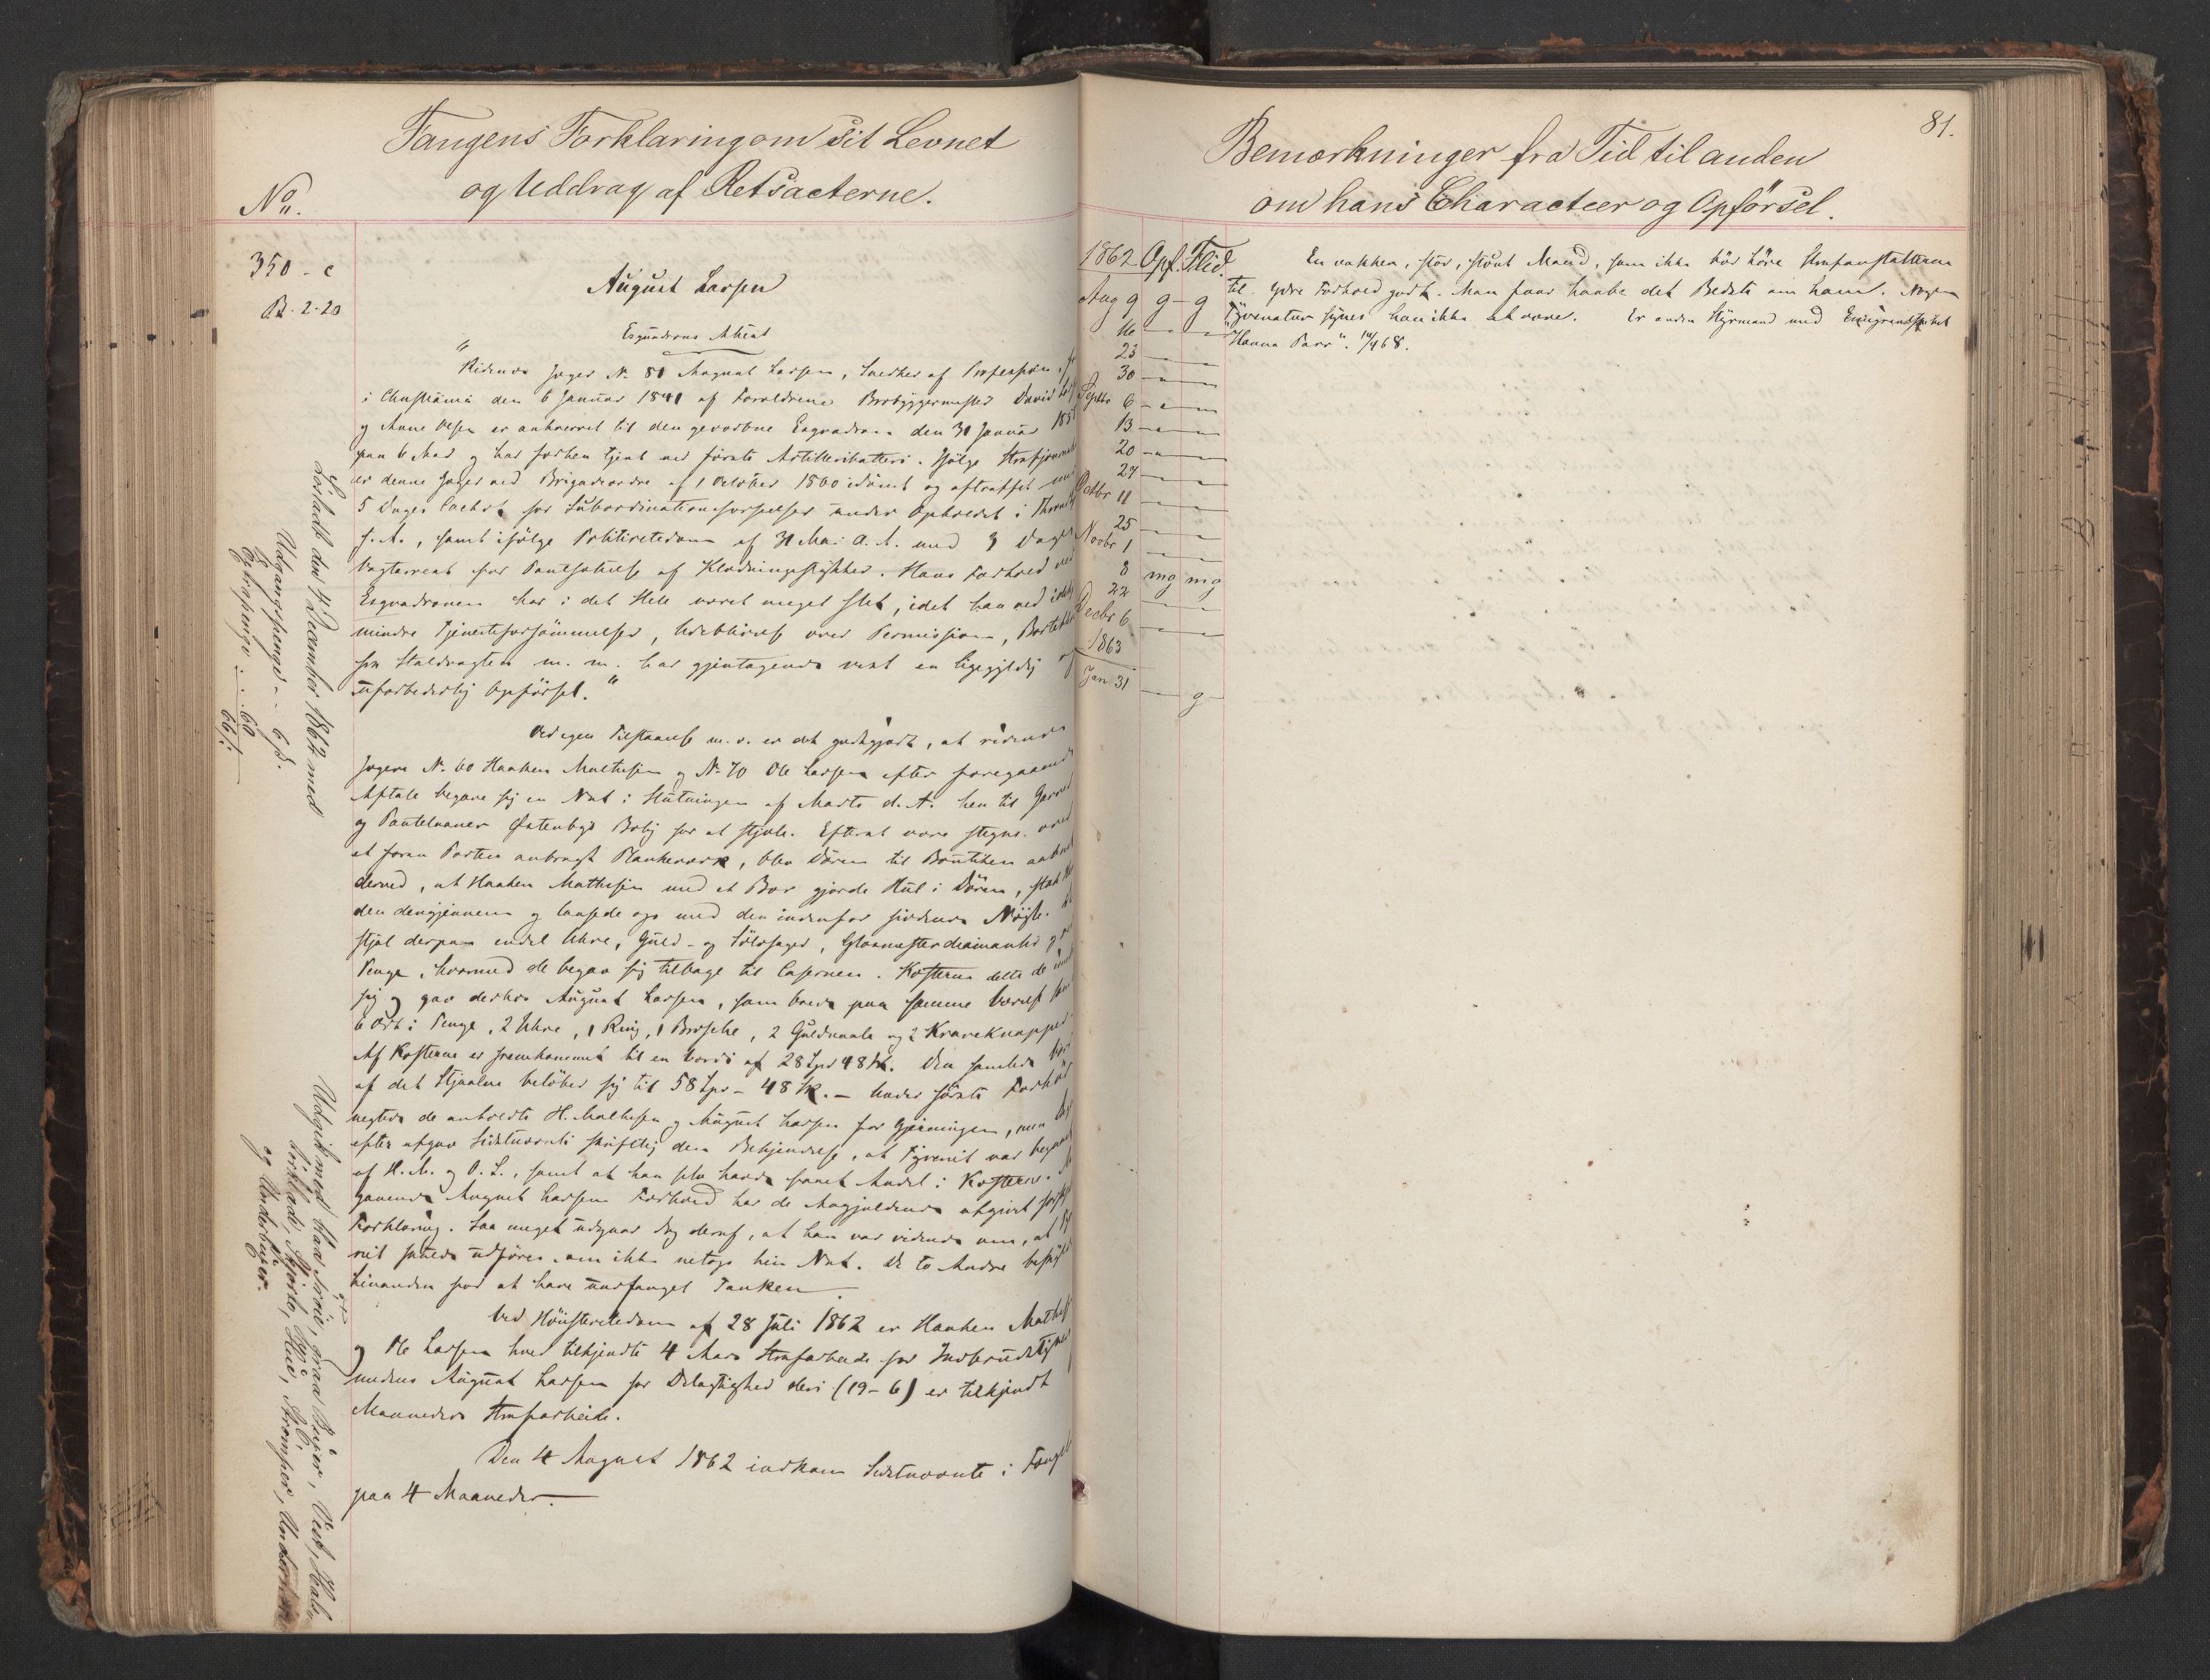 Fangens Forklaring om sit Levnet
og Uddrag af Retsacterne.
No.
350 - c
B. 2-20
August Larsen
Esquadrons Attest
"Ridende Jæger No 81 August Larsen, Snedker af Profession, f
i Christiania den 6 Januar 1841 af Forældrene Brobyggermester David
og Anne Olsen er anhvervet til den gevorbne Esquadron den 31 Januar 185
paa 6 Aar og har forhen tjent ved første Artilleribatteri. Ifølge Straffejournal
er denne Jæger ved Brigadeordre af 1 October 1860 idømt og afstraffet
5 Dages Cachot for Subordinationsforseelser under Opholdet i
f. A., samt ifølge Politiretsdom af 31 Mai A. A. med 3 Dages
Vagtarrest for Pantsættelse af Klædningsstykker. Hans Forhold ved
Esquadronen har i det Hele været meget slet, idet han ved
mindre Tjenesteforsømmelser, Udeblivelse over Permission,
fra Staldvagten m. m. har gjentagende vist en ligegyldig og
uforbederlig Opførsel."
Ved egen Tilstaaelse m. v. er det godtgjort, at ridende
Jægere No 60 Haaken Mathesen og No 70 Ole Larsen efter foregaaende
Aftale begave sig en Nat i Slutningen af Marts d. A. hen til
og Pantelaaner Østenbys Bolig for at stjæle. Efterat være stegne over
et foran Porten anbragt Plankeværk, blev Døren til Boutiken aabnet
derved, at Haaken Mathesen med et Bor gjorde Hul i Døren, stak
den derigjennem og laasede op med den indenfor siddende Nøgle.
stjal derpaa endel Uhre, Guld- og Sølvsager, Glasmesterdiamanter og
Penge, hvormed de begav sig tilbage til Casernen. Kosterne delte de
sig og gav derhos August Larsen, som boede paa samme Værelse
6 Ort i Penge, 2 Uhre, 1 Ring, 1 Brosche, 2 Guldnaale og 2 Kraveknapper
Af Kosterne er fremkommet til en Værdi af 28 Spd 48 sk. Den samlede
af det Stjaalne beløber sig til 58 Spd - 48 sk. - Under første Forhør
negtede de anholdte H. Mathesen og August Larsen for Gjerningen, men
efter afgav Sidstnævnte skriftlig den Bekjendelse, at Tyveriet var begaaet
af H. M. og O. L., samt at han selv havde faaet Andel i Kosterne.
gaaende August Larsens Forhold har de Angjældende afgivet
Forklaring. Saa meget udgaar dog deraf, at han var vidende om, at
riet skulde udføres, om ikke netop hin Nat. De to Andre
hinanden for at have undfanget Tanken.
Ved Høiesteretsdom af 28 Juli 1862 er Haaken
og Ole Larsen hver tilkjendte 4 Aars Strafarbeide for
medens August Larsen for Delagtighed deri (19-6) er tilkjendt
Maaneders Strafarbeide.
Den 4 August 1862 indkom Sidstnævnte i
paa 4 Maaneder.
Løsladt den 4 December 1862 med
Udgangspenge - - 6 sk.
Extrapenge - - 60
66 sk
Udgik med blaa Trøie, graa Buxer, Vest, Hals-
tørklæde, Skjorte, Hue, Strømper, Undertrøie
og Underbuxer.
81.
Bemærkninger fra Tid til anden
om hans Characteer og Opførsel.
1862 Opf. Flid.
Aug 9 g - g
16
23
30
Septbr 6
13
20
27
Octbr 11
25
Novbr 1
8 mg mg
22
Decbr 6
1863
Jan 31 g
En vakker, stor, stout Mand, som ikke bør høre Strafanstalterne
til. Ydre Forhold godt. Man faar haabe det Bedste om ham. Nogen
Tyvenatur synes han ikke at være. Er anden Styrmand med Emigrantskibet
"Hanna Parr".